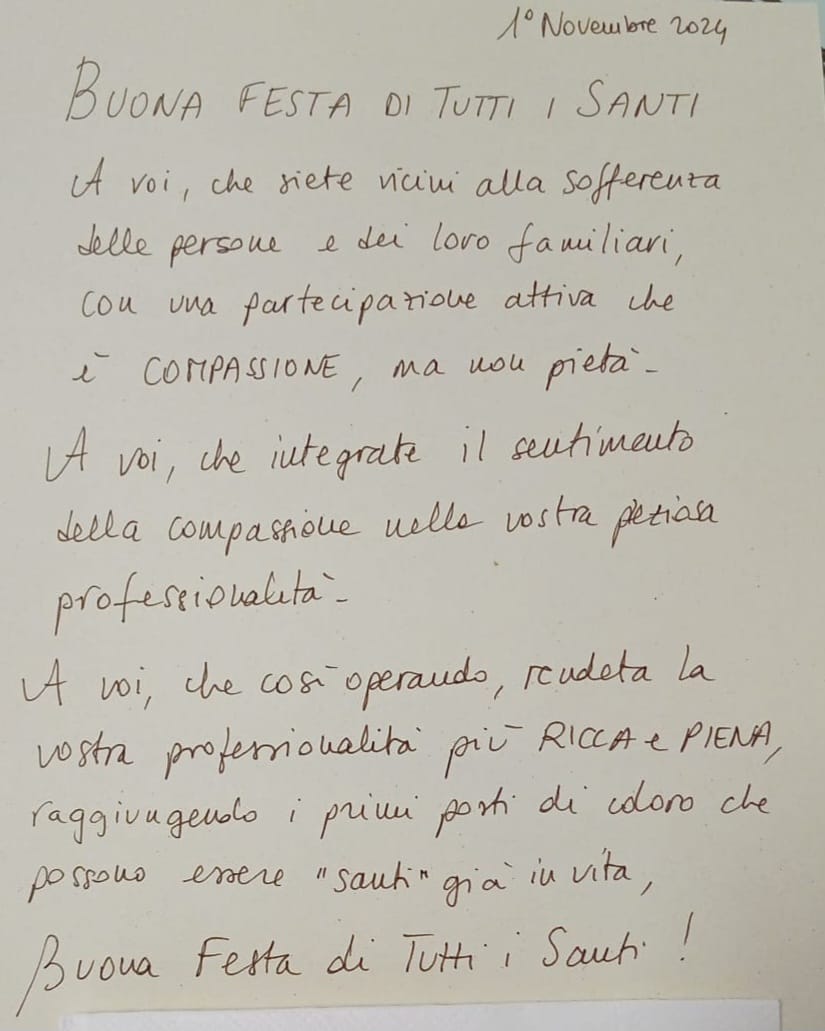 1° Novembre 2024
BUONA FESTA DI TUTTI I SANTI
A voi, che siete vicini alla sofferenza
delle persone e dei loro familiari,
con una partecipazione attiva che
è COMPASSIONE, ma non pietà-
A voi, che integrate il sentimento
della compassione nella vostra preziosa
professionalità-
A voi, che così operando, rendeta la
vostra professionalità più RICCA e PIENA,
raggiungendo i primi posti di coloro che
possono essere "santi" già in vita,
Buona Festa di Tutti i Santi!